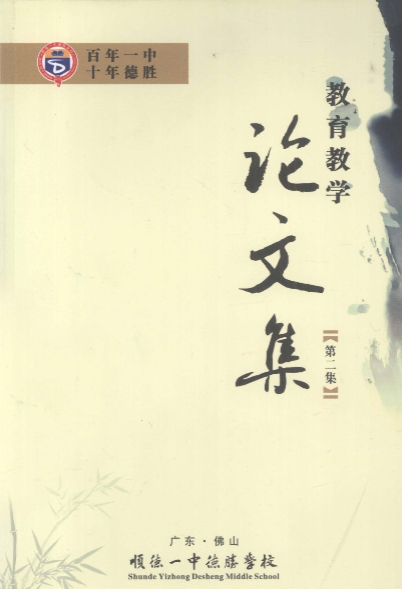 百年一中
十年德胜
教育教学
论文集
【第二集】
广东·佛山
顺德一中德胜学校
Shunde Yizhong Desheng Middle School